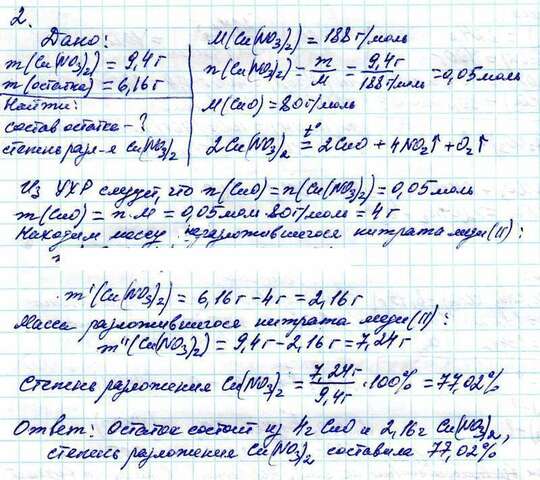 2.
Дано:
m(Cu(NO₃)₂) = 9,4 г
m(остатка) = 6,16 г
Найти:
состав остатка - ?
степень разл-я Cu(NO₃)₂
M(Cu(NO₃)₂) = 188 г/моль
n(Cu(NO₃)₂) = m/M = 9,4 г/188 г/моль = 0,05 моль
M(CuO) = 80 г/моль
2Cu(NO₃)₂ t° = 2CuO + 4NO₂↑ + O₂↑
Из УХР следует, что n(CuO) = n(Cu(NO₃)₂) = 0,05 моль
m(CuO) = n·M = 0,05 моль 80 г/моль = 4 г
Находим массу неразложившегося нитрата меди(II):
m'(Cu(NO₃)₂) = 6,16 г - 4 г = 2,16 г
Масса разложившегося нитрата меди(II):
m''(Cu(NO₃)₂) = 9,4 г - 2,16 г = 7,24 г
Степень разложения Cu(NO₃)₂ = 7,24 г/9,4 г · 100% = 77,02%
Ответ: Остаток состоит из 4 г CuO и 2,16 г Cu(NO₃)₂,
степень разложения Cu(NO₃)₂ составила 77,02%